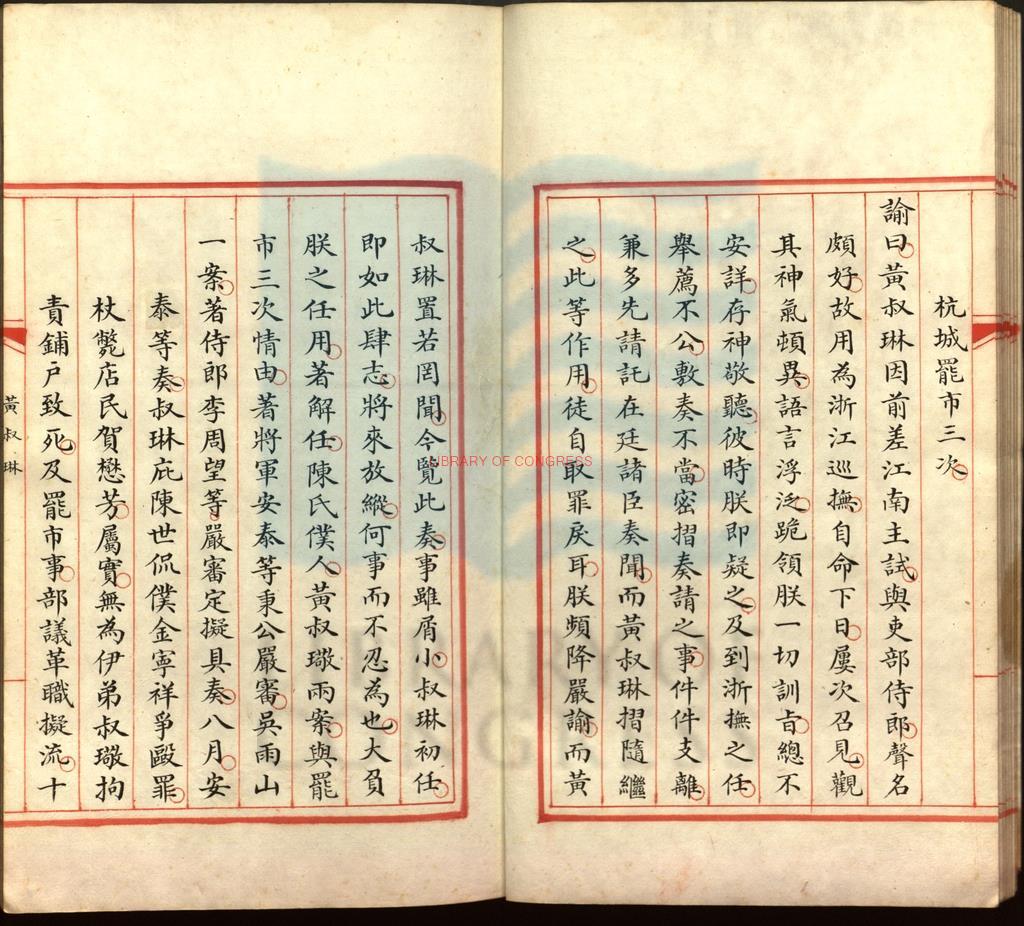 杭城罷市三次
諭曰黃叔琳因前差江南主試與吏部侍郎聲名
頗好故用為浙江巡撫自命下日屢次召見觀
其神氣頓異語言浮泛跪領朕一切訓旨總不
安詳存神敬聽彼時朕即疑之及到浙撫之任
舉薦不公敷奏不當密摺奏請之事件件支離
兼多先請託在廷諸臣奏聞而黃叔琳摺隨繼
之此等作用徒自取罪戾耳朕頻降嚴諭而黃
叔琳置若罔聞今覽此奏事雖屑小叔琳初任
即如此肆志將來放縱何事而不忍為也大負
朕之任用著解任陳氏僕人黃叔璥兩案與罷
市三次情由著將軍安泰等秉公嚴審吳雨山
一案著侍郎李周望等嚴審定擬具奏八月安
泰等奏叔琳庇陳世侃僕金寧祥爭毆罪
杖斃店民賀懋芳屬實無為伊弟叔璥拘
責鋪戶致死及罷市事部議革職擬流十
黃叔琳
LIBRARY OF CONGRESS